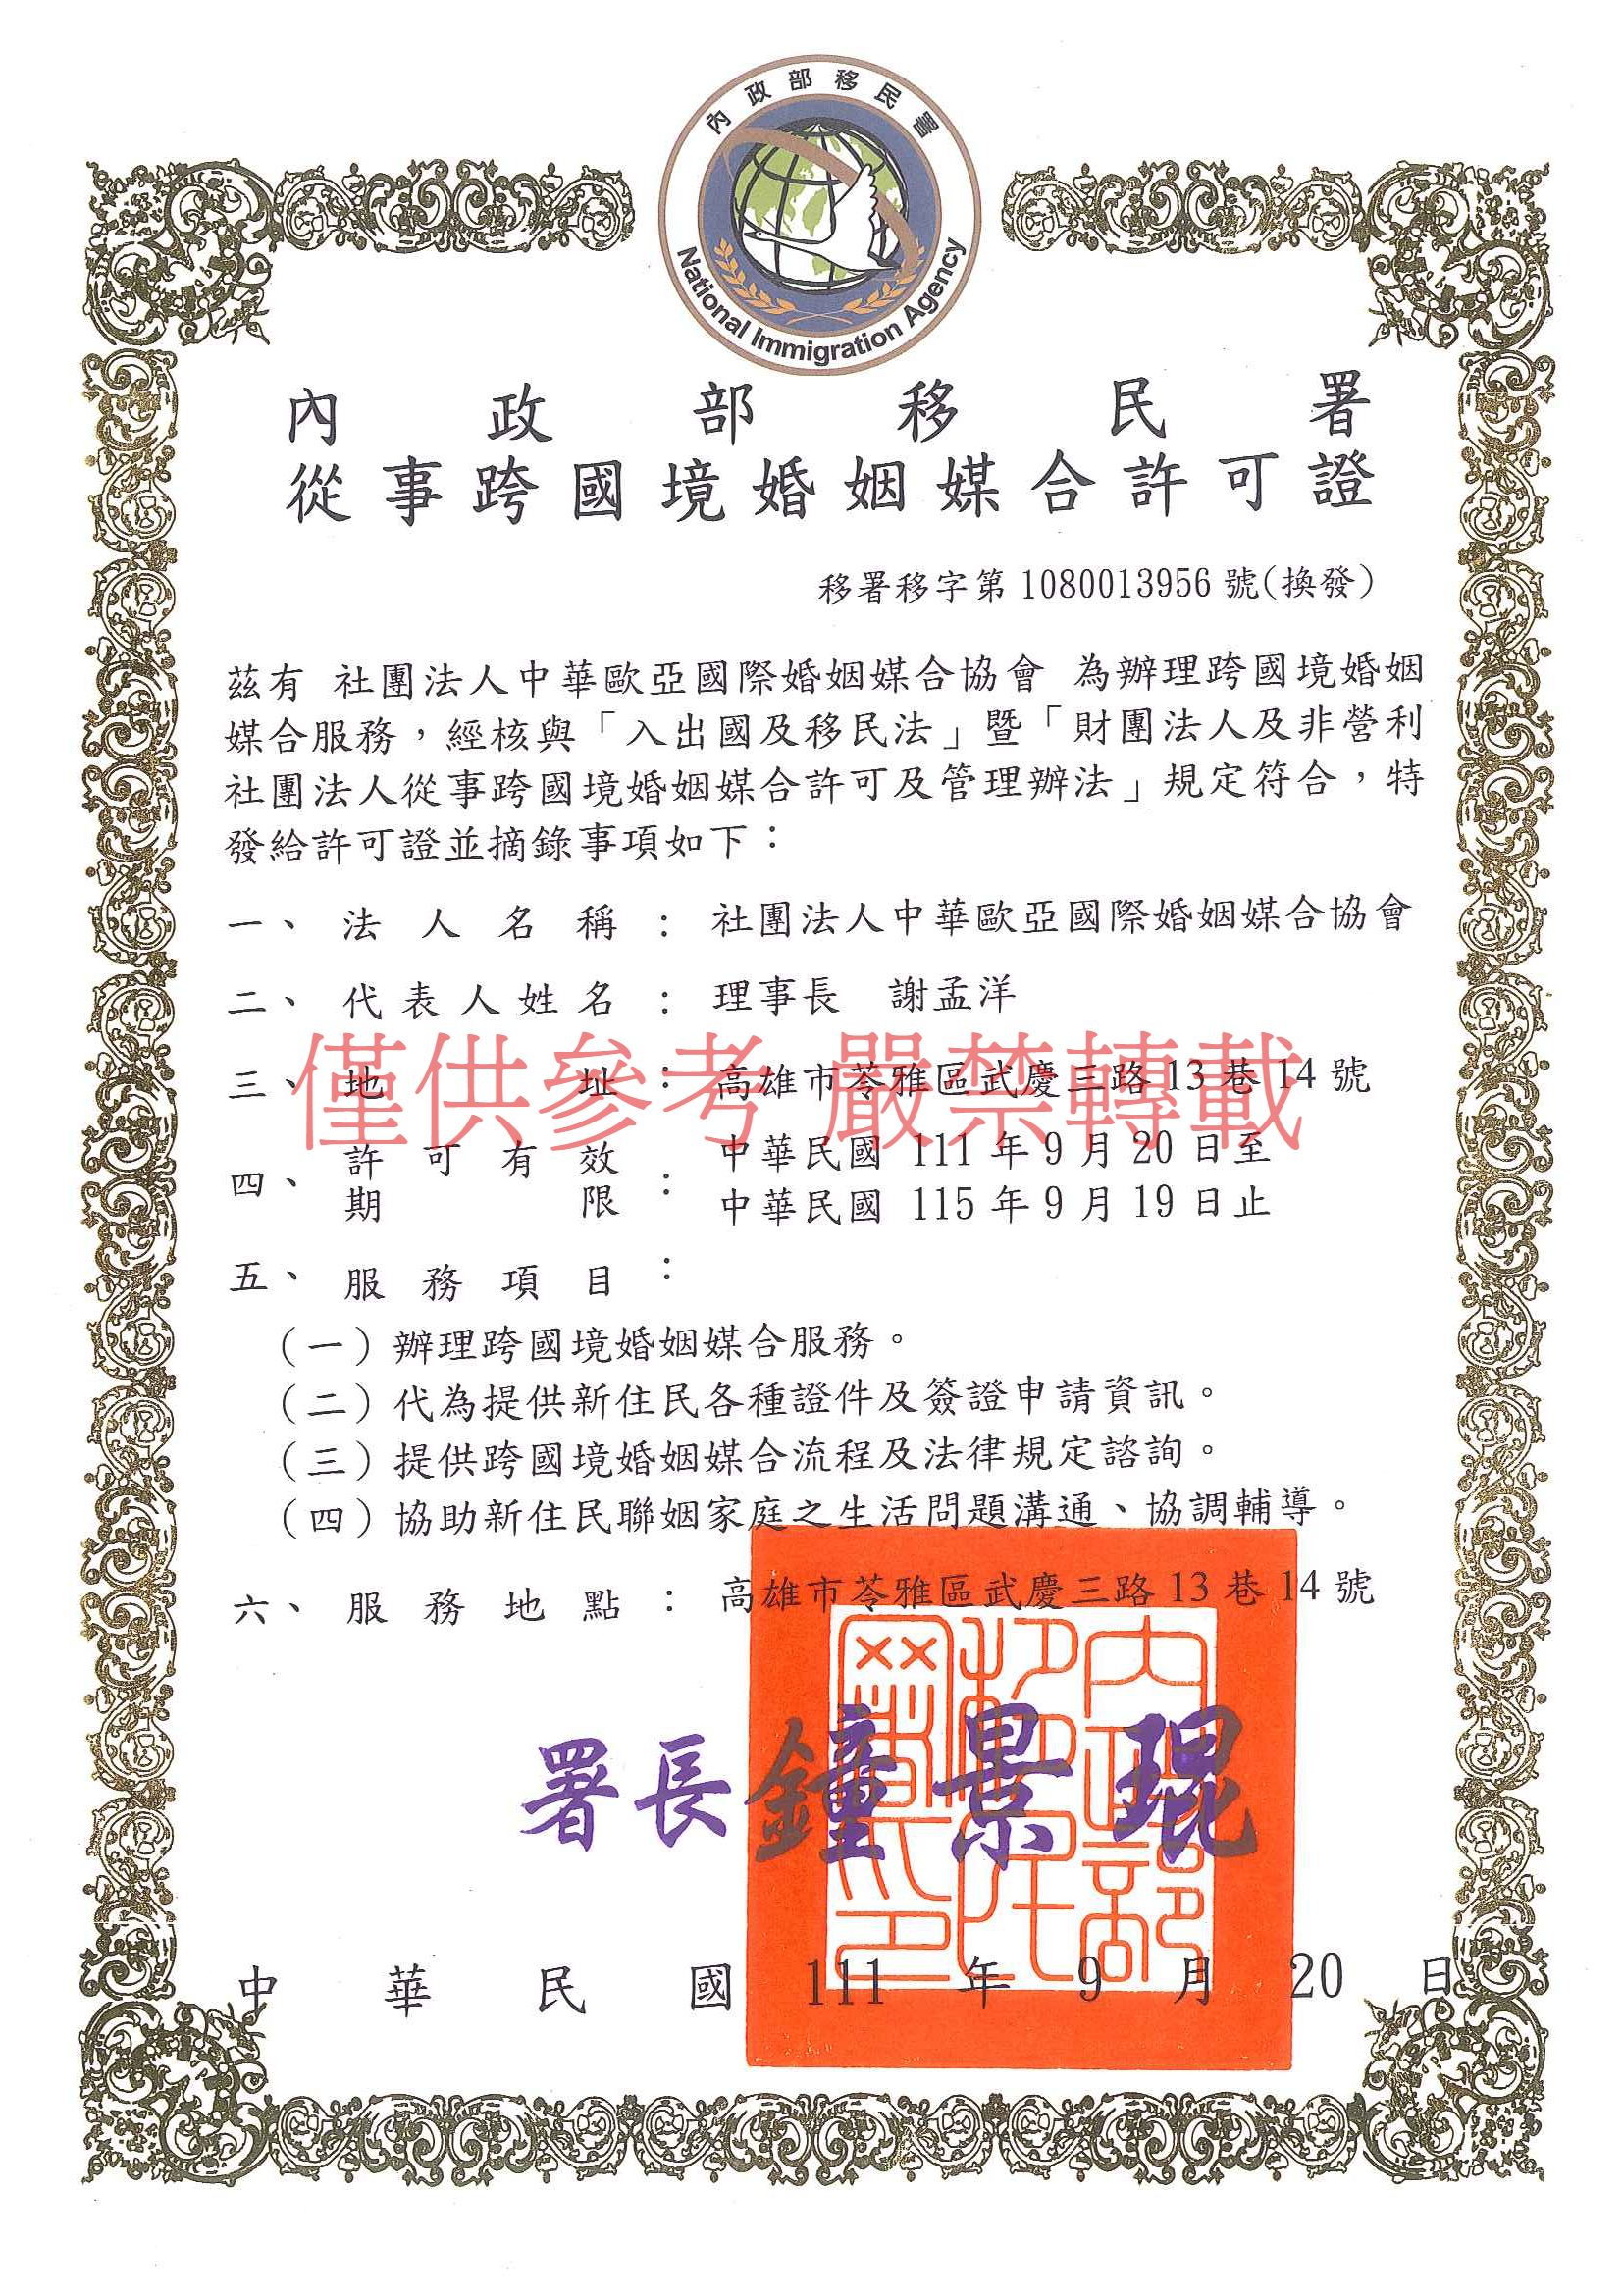 內政部移民署
National Immigration Agency
內政部移民署
從事跨國境婚姻媒合許可證
移署移字第1080013956號(換發)
茲有 社團法人中華歐亞國際婚姻媒合協會 為辦理跨國境婚姻
媒合服務，經核與「入出國及移民法」暨「財團法人及非營利
社團法人從事跨國境婚姻媒合許可及管理辦法」規定符合，特
發給許可證並摘錄事項如下：
一、法人名稱：社團法人中華歐亞國際婚姻媒合協會
二、代表人姓名：理事長 謝孟洋
僅供參考 嚴禁轉載
三、地址：高雄市苓雅區武慶三路13巷14號
四、許可有效期限：中華民國 111 年 9 月 20 日至
中華民國 115 年 9 月 19 日止
五、服務項目：
（一）辦理跨國境婚姻媒合服務。
（二）代為提供新住民各種證件及簽證申請資訊。
（三）提供跨國境婚姻媒合流程及法律規定諮詢。
（四）協助新住民聯姻家庭之生活問題溝通、協調輔導。
六、服務地點：高雄市苓雅區武慶三路13巷14號
內政部移民署印
署長鐘景琨
中華民國 111 年 9 月 20 日